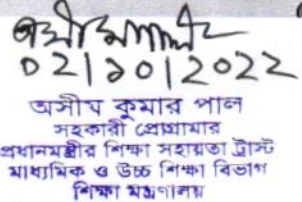 02/১0/2022
অসীম কুমার পাল
সহকারী প্রোগ্রামার
প্রধানমন্ত্রীর শিক্ষা সহায়তা ট্রাস্ট
মাধ্যমিক ও উচ্চ শিক্ষা বিভাগ
শিক্ষা মন্ত্রণালয়